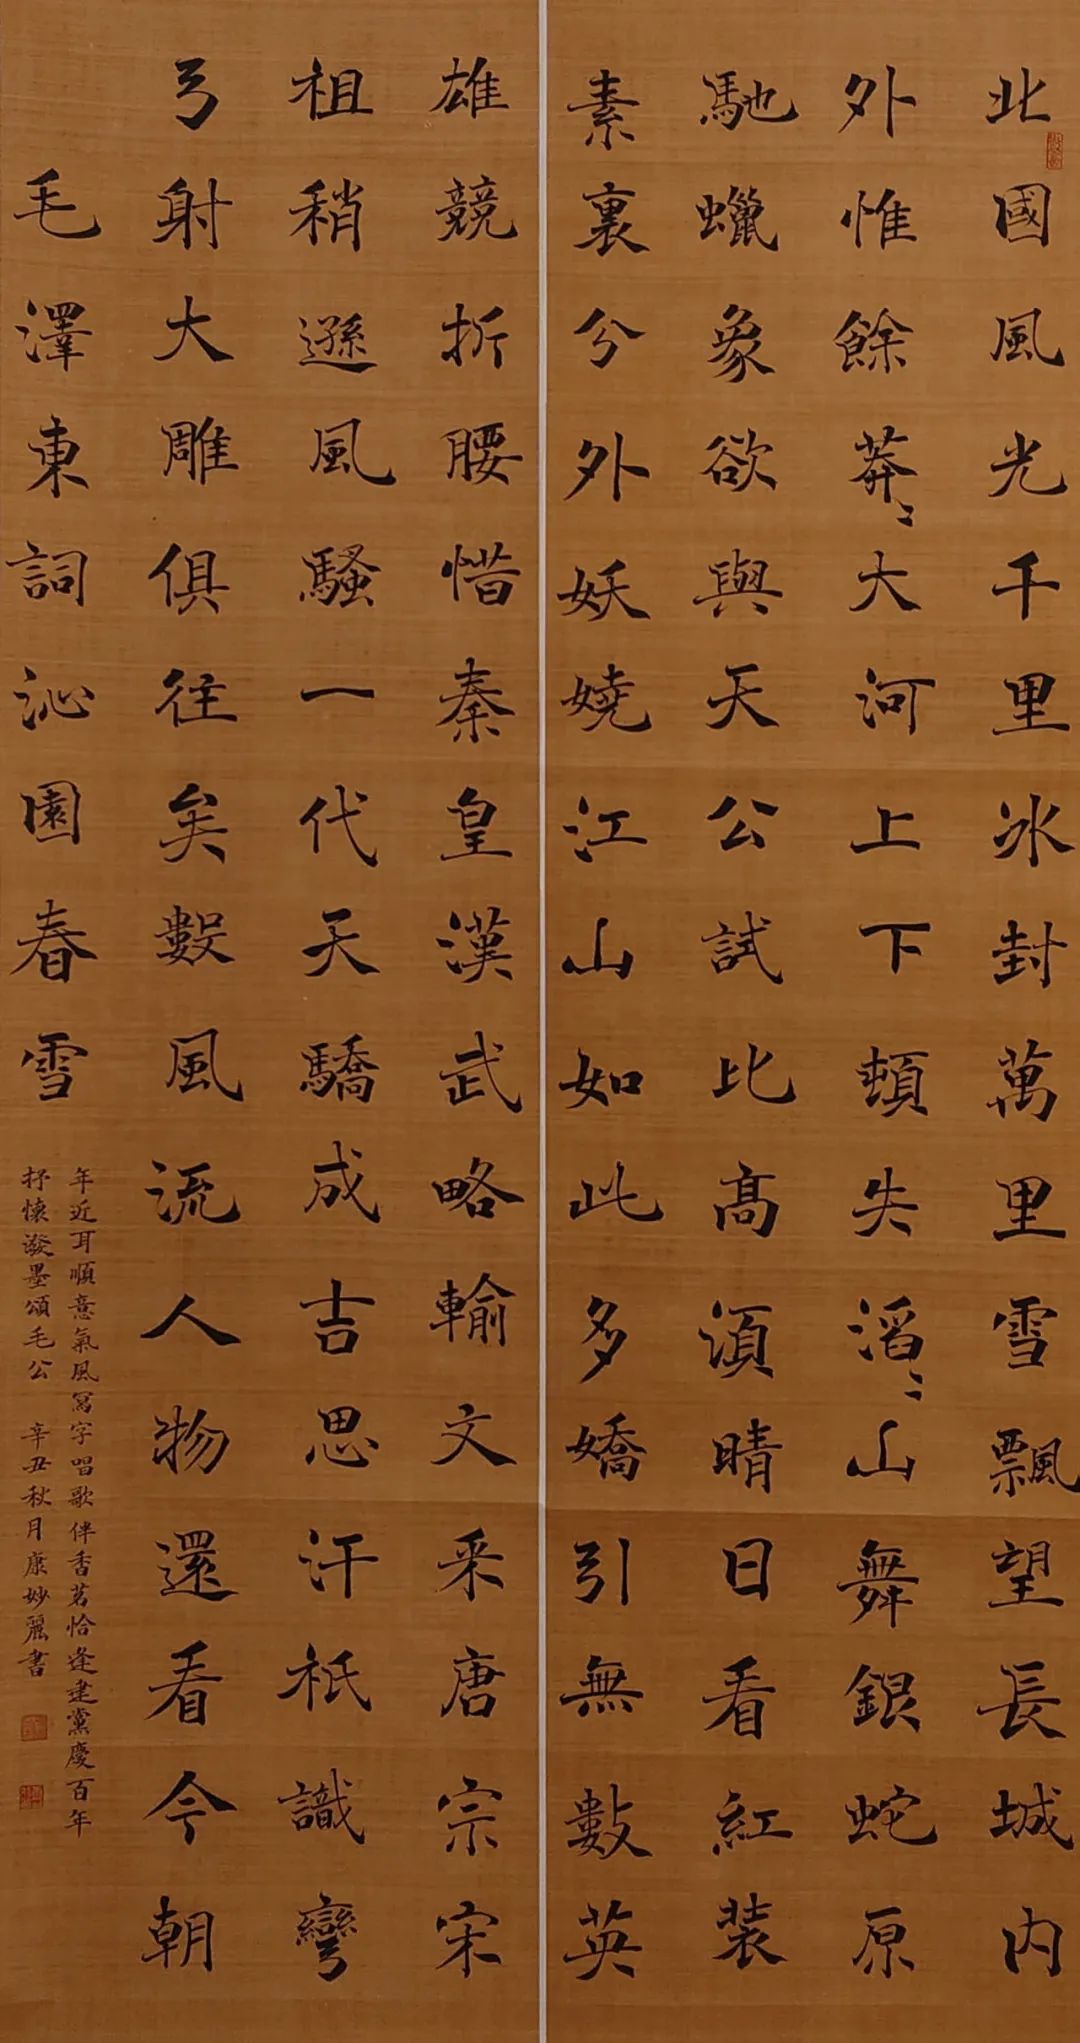 北國風光千里冰封萬里雪飄望長城內
外惟餘莽〻大河上下頓失滔〻山舞銀蛇原
馳蠟象欲與天公試比高湏晴日看紅裝
素裏兮外妖嬈江山如此多嬌引無數英
雄競折腰惜秦皇漢武略輸文采唐宗宋
祖稍遜風騷一代天驕成吉思汗祇識彎
弓射大雕俱往矣數風流人物還看今朝
毛澤東詞沁園春雪
年近耳順意氣風寫字唱歌伴香茗恰逢建黨慶百年
抒懷潑墨頌毛公 辛丑秋月康妙麗書